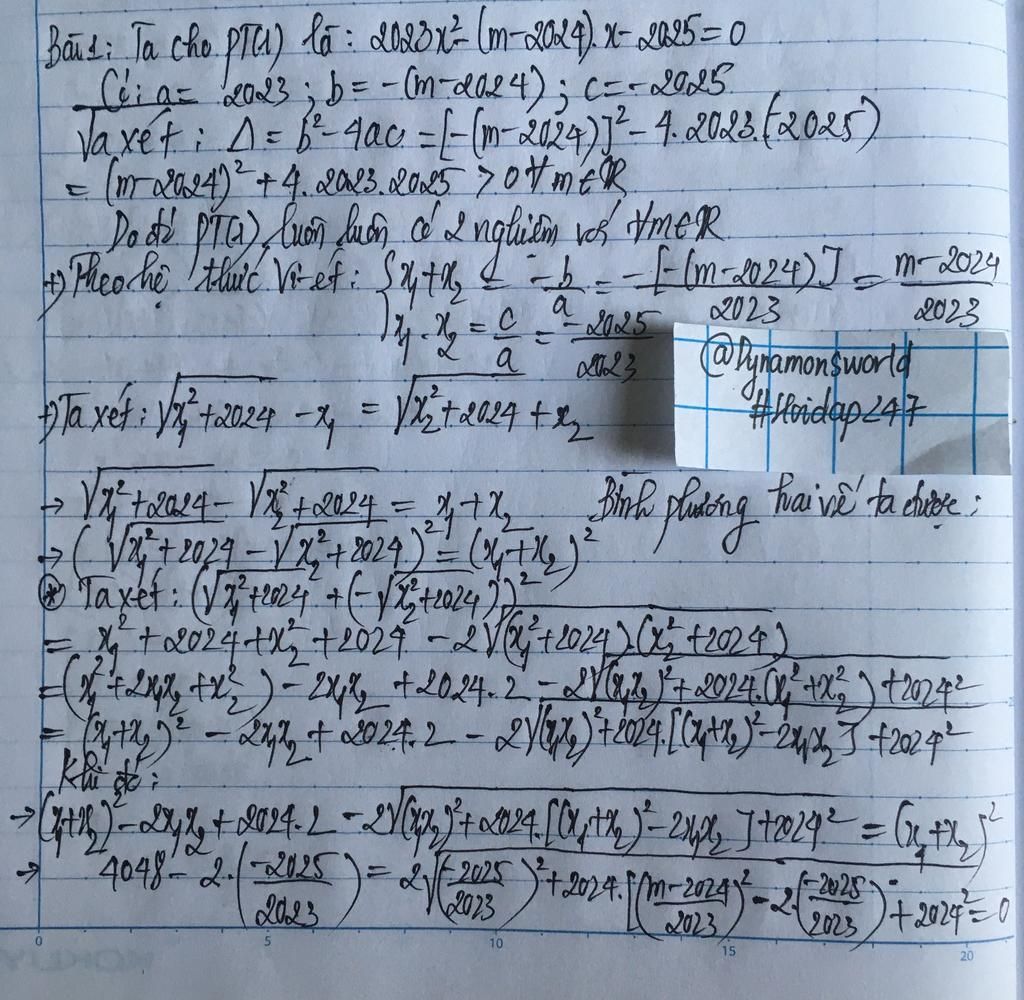 Bài 1: Ta cho PT(1) là: 2023x² - (m-2024).x - 2025 = 0
Có: a = 2023; b = -(m-2024); c = -2025
Ta xét: Δ = b² - 4ac = [-(m-2024)]² - 4.2023.(-2025)
= (m-2024)² + 4.2023.2025 > 0 ∀m∈R
Do đó PT(1) luôn luôn có 2 nghiệm với ∀m∈R
+) Theo hệ thức Vi-ét: { x₁+x₂ = -b/a = -[-(m-2024)]/2023 = (m-2024)/2023
x₁.x₂ = c/a = -2025/2023
@Dynamonsworld
#Hoidap247
+) Ta xét: √(x₁²+2024) - x₁ = √(x₂²+2024) + x₂
→ √(x₁²+2024) - √(x₂²+2024) = x₁+x₂ Bình phương hai vế ta được:
→ (√(x₁²+2024) - √(x₂²+2024))² = (x₁+x₂)²
(*) Ta xét: (√(x₁²+2024) + (-√(x₂²+2024)))²
= x₁² + 2024 + x₂² + 2024 - 2√((x₁²+2024).(x₂²+2024))
= (x₁²+2x₁x₂+x₂²) - 2x₁x₂ + 2024.2 - 2√((x₁x₂)²+2024.(x₁²+x₂²)+2024²)
= (x₁+x₂)² - 2x₁x₂ + 2024.2 - 2√((x₁x₂)²+2024.[(x₁+x₂)²-2x₁x₂]+2024²)
Khi đó:
→ (x₁+x₂)² - 2x₁x₂ + 2024.2 - 2√((x₁x₂)²+2024.[(x₁+x₂)²-2x₁x₂]+2024²) = (x₁+x₂)²
→ 4048 - 2.(-2025/2023) = 2√((-2025/2023)²+2024.[((m-2024)/2023)²-2.(-2025/2023)]+2024²) = 0
0 5 10 15 20